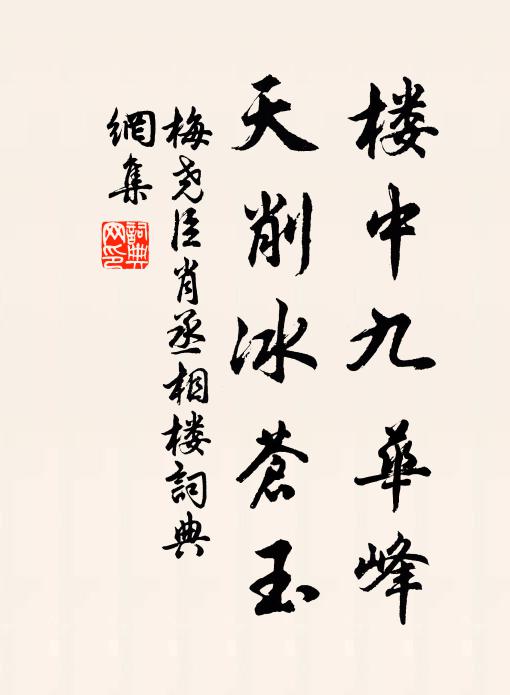 楼中九华峰
天削冰苍玉
梅尧臣肖丞相楼词典
網集
詞典
网印